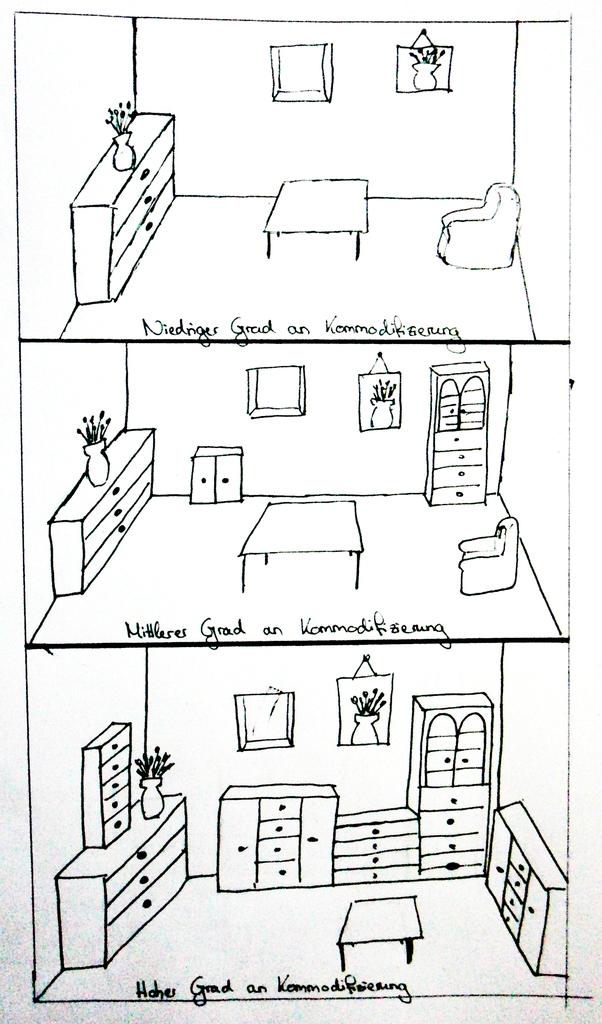 Niedriger Grad an Kommodifizierung
Mittlerer Grad an Kommodifizierung
Hoher Grad an Kommodifizierung